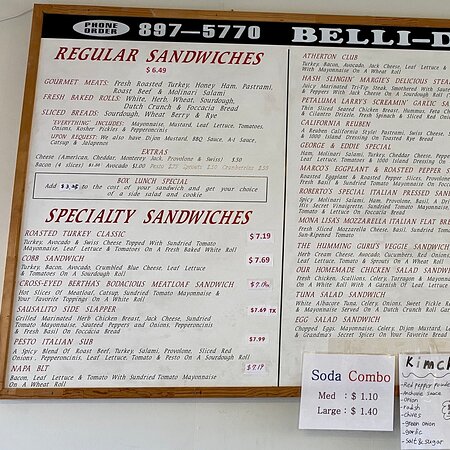 PHONE ORDER 897-5770 BELLI-D
REGULAR SANDWICHES
$ 6.49
GOURMET MEATS: Fresh Roasted Turkey, Honey Ham, Pastrami,
Roast Beef & Molinari Salami
FRESH BAKED ROLLS: White, Herb, Wheat, Sourdough,
Dutch Crunch & Foccacia Bread
SLICED BREADS: Sourdough, Wheat Berry & Rye
EVERYTHING INCLUDES: Mayonnaise, Mustard, Leaf Lettuce, Tomatoes,
Onions, Kosher Pickles & Pepperoncinis
UPON REQUEST: We also have Dijon Mustard, BBQ Sauce, A-1 Sauce,
Catsup & Jalapenos
EXTRAS
Cheese (American, Cheddar, Monterey Jack, Provolone & Swiss) $50
Bacon (4 slices) Avocado $1.00 Pesto Sprouts Cranberries
BOX LUNCH SPECIAL
Add to the cost of your sandwich and get your choice
of a side salad and cookie
SPECIALTY SANDWICHES
ROASTED TURKEY CLASSIC $7.19
Turkey, Avocado & Swiss Cheese Topped With Sundried Tomato
Mayonnaise, Leaf Lettuce & Tomatoes On A Fresh Baked White Roll
COBB SANDWICH $7.69
Turkey, Bacon, Avocado, Crumbled Blue Cheese, Leaf Lettuce
& Tomatoes On A Sourdough Roll
CROSS-EYED BERTHA'S BODACIOUS MEATLOAF SANDWICH
Hot Slices Of Meatloaf, Catsup, Sundried Tomato Mayonnaise &
Your Favorite Toppings On A White Roll
SAUSALITO SIDE SLAPPER $7.69 TX
Grilled Marinated Herb Chicken Breast, Jack Cheese, Sundried
Tomato Mayonnaise, Sauteed Peppers and Onions, Pepperoncinis
& Fresh Basil On Foccacia Bread
PESTO ITALIAN SUB $7.99
A Spicy Blend Of Roast Beef, Turkey, Salami, Provolone, Sliced Red
Onions, Pepperoncinis, Leaf Lettuce, Tomato & Pesto On A Sourdough Roll
NAPA BLT $7.19
Bacon, Leaf Lettuce & Tomato With Sundried Tomato Mayonnaise
On A Wheat Roll
ATHERTON CLUB
Turkey, Bacon, Avocado, Jack Cheese, Leaf Lettuce &
With Mayonnaise On A Wheat Roll
HASH SLINGIN' MARGIE'S DELICIOUS STEAK
Juicy Marinated Tri-Tip Steak, Smothered With Sauteed
& Peppers With Jack Cheese On A Sourdough Roll
PETALUMA LARRY'S SCREAMIN' GARLIC SA
Thin Sliced Seared Chicken Breast, Hummus, Feta Ch
& Cilantro Drizzle, Fresh Spinach & Sliced Red Onio
CALIFORNIA REUBEN
A Reuben California Style! Pastrami, Swiss Cheese,
& 1000 Island Dressing On Toasted Rye Bread
GEORGE & EDDIE SPECIAL
Ham, Molinari Salami, Turkey, Cheddar Cheese, Pepper
Leaf Lettuce, Tomatoes & 1000 Island Dressing On
MARCO'S EGGPLANT & ROASTED PEPPER S
Roasted Eggplant & Roasted Pepper Slices, Provolone
Fresh Basil & Sundried Tomato Mayonnaise On Foccacia
ROBERTO'S SPECIAL ITALIAN PRESSED SAN
Molinari Salami, Ham, Provolone, Basil, A Dri
His Secret Vinaigrette, Sundried Tomato Mayonnaise
& Lettuce On Foccacia Bread
MONA LISA'S MOZZARELLA ITALIAN FLAT BRE
Fresh Sliced Mozzarella Cheese, Basil, Sundried Tomato
Sun-Ripened Tomato
THE HUMMING GURU'S VEGGIE SANDWICH
Herb Cream Cheese, Avocado, Cucumbers, Red Onions,
Leaf Lettuce, Tomato & Sprouts On A Wheat Roll
OUR HOMEMADE CHICKEN SALAD SANDW
Fresh Chicken, Scallions, Celery, Tarragon & Mayonn
On A White Roll With A Garnish Of Leaf Lettuce
TUNA SALAD SANDWICH
White Albacore Tuna, Celery, Onions, Sweet Pickle R
& Mayonnaise Served On A Dutch Crunch Roll Garn
EGG SALAD SANDWICH
Chopped Eggs, Mayonnaise, Celery, Dijon Mustard, L
& Grandma's Secret Spices On Your Favorite Bread
Soda Combo
Med : $ 1.10
Large : $ 1.40
Kimch
- Red pepper powder
- Anchovie sauce
- onion
- radish
- chives
- green onion
- garlic
- salt & sugar